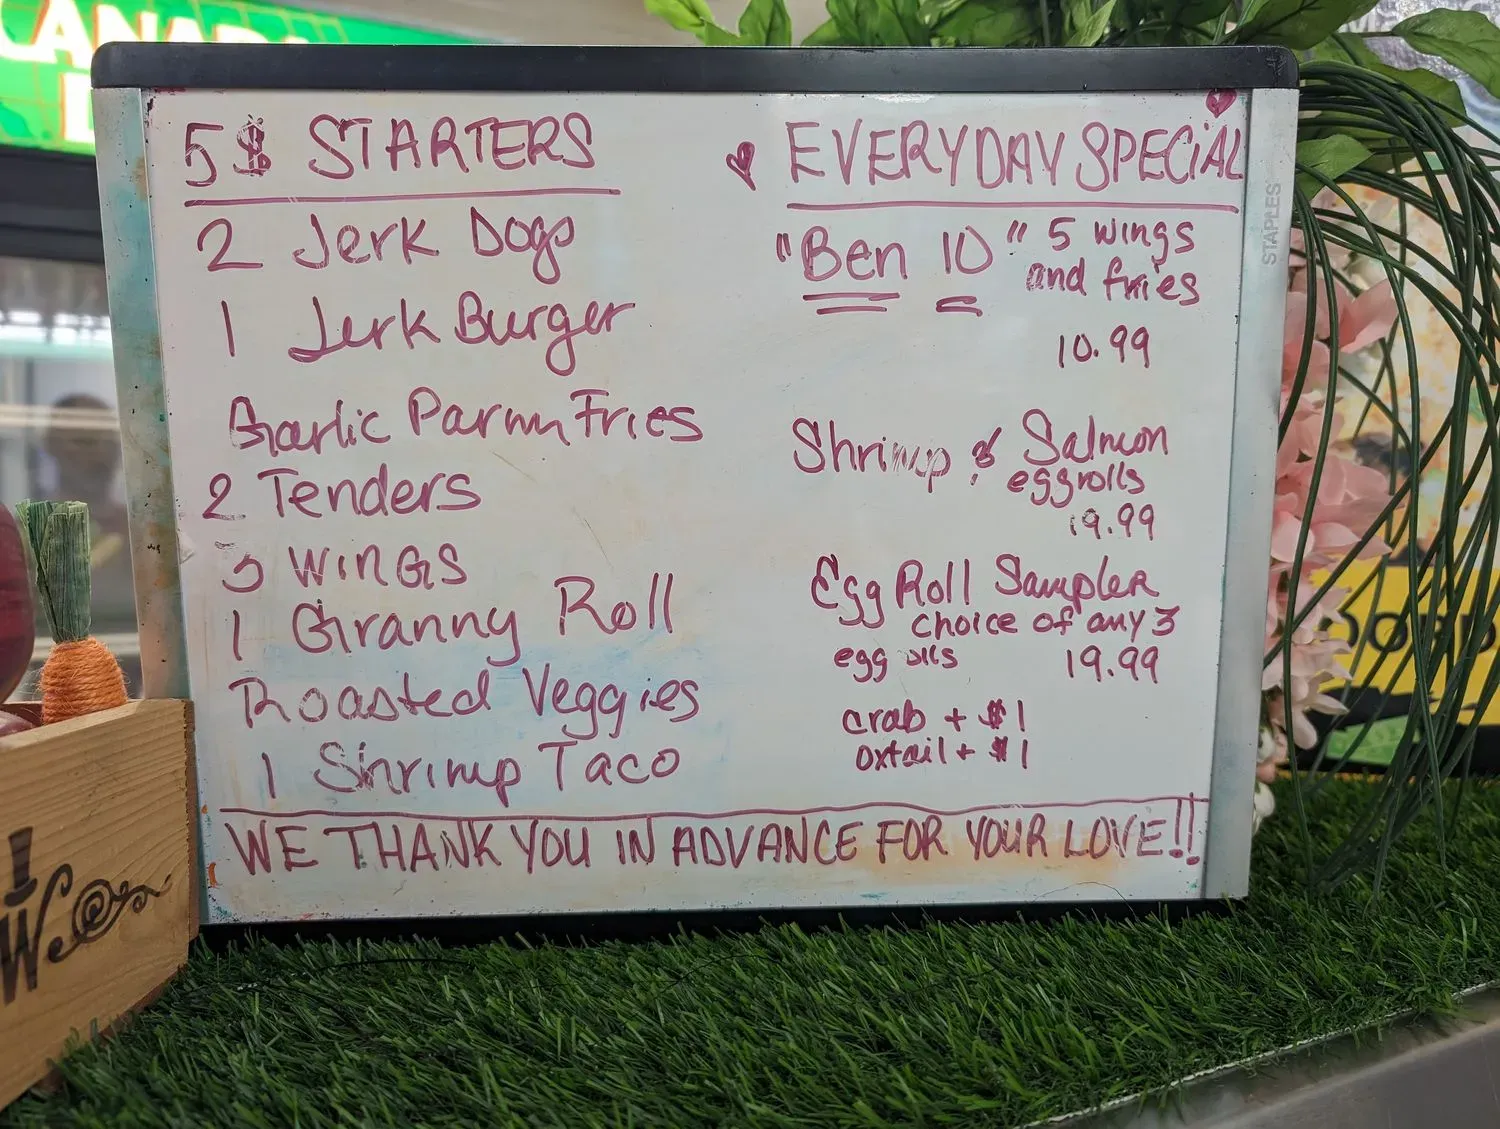 5$ STARTERS
2 Jerk Dogs
1 Jerk Burger
Garlic Parm Fries
2 Tenders
3 WINGS
1 Granny Roll
Roasted Veggies
1 Shrimp Taco
EVERYDAY SPECiAL
"Ben 10" 5 wings
and fries
10.99
Shrimp & Salmon
eggrolls
19.99
Egg Roll Sampler
choice of any 3
egg olls 19.99
crab + $1
oxtail + $1
WE THANK YOU IN ADVANCE FOR YOUR LOVE!!
STAPLES
W